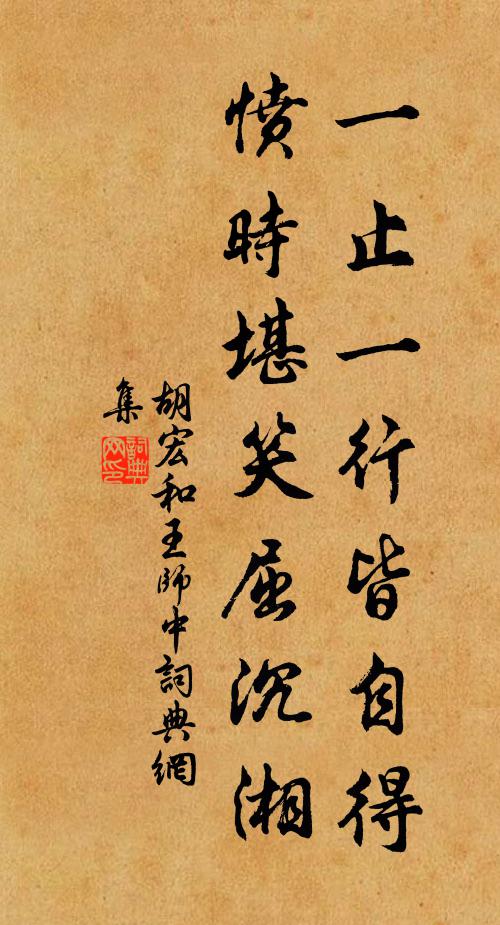 一止一行皆自得
憤時堪笑屈沉湘
胡宏和王師中詞典網
集
詞典網印